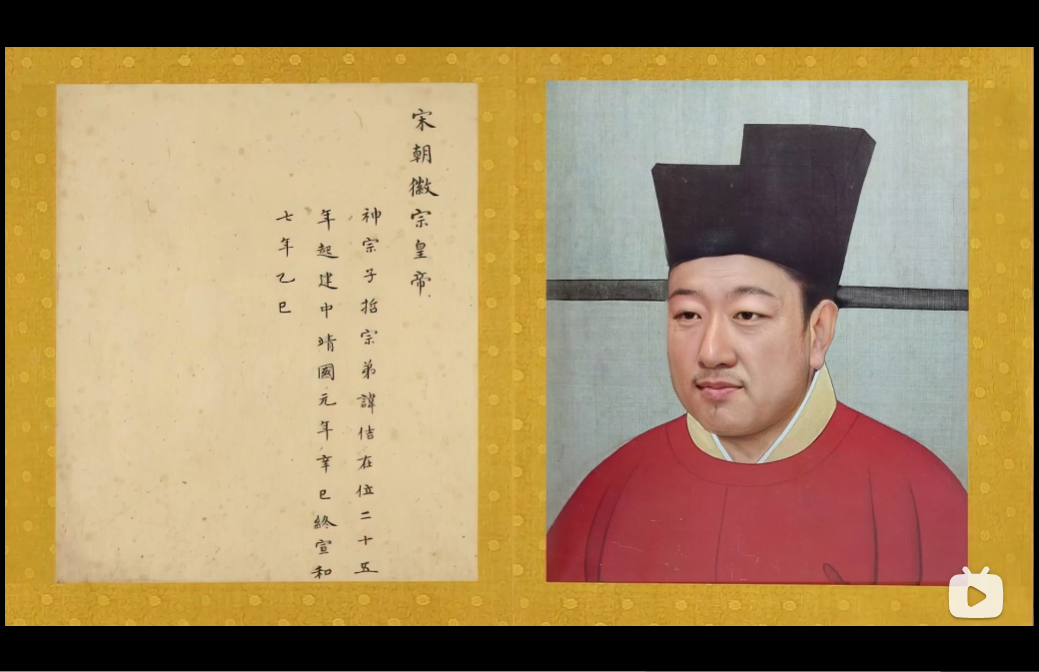 宋朝徽宗皇帝
神宗子哲宗弟諱佶在位二十五
年起建中靖國元年辛巳終宣和
七年乙巳